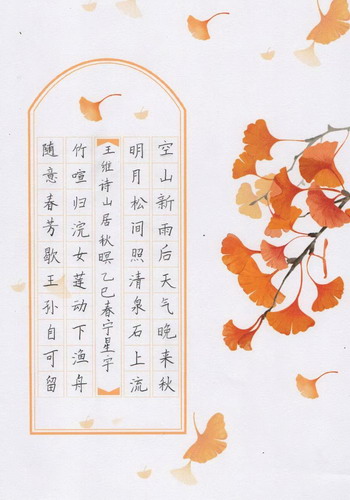 空山新雨后天气晚来秋
明月松间照清泉石上流
王维诗山居秋暝乙巳春宁星宇
竹喧归浣女莲动下渔舟
随意春芳歇王孙自可留